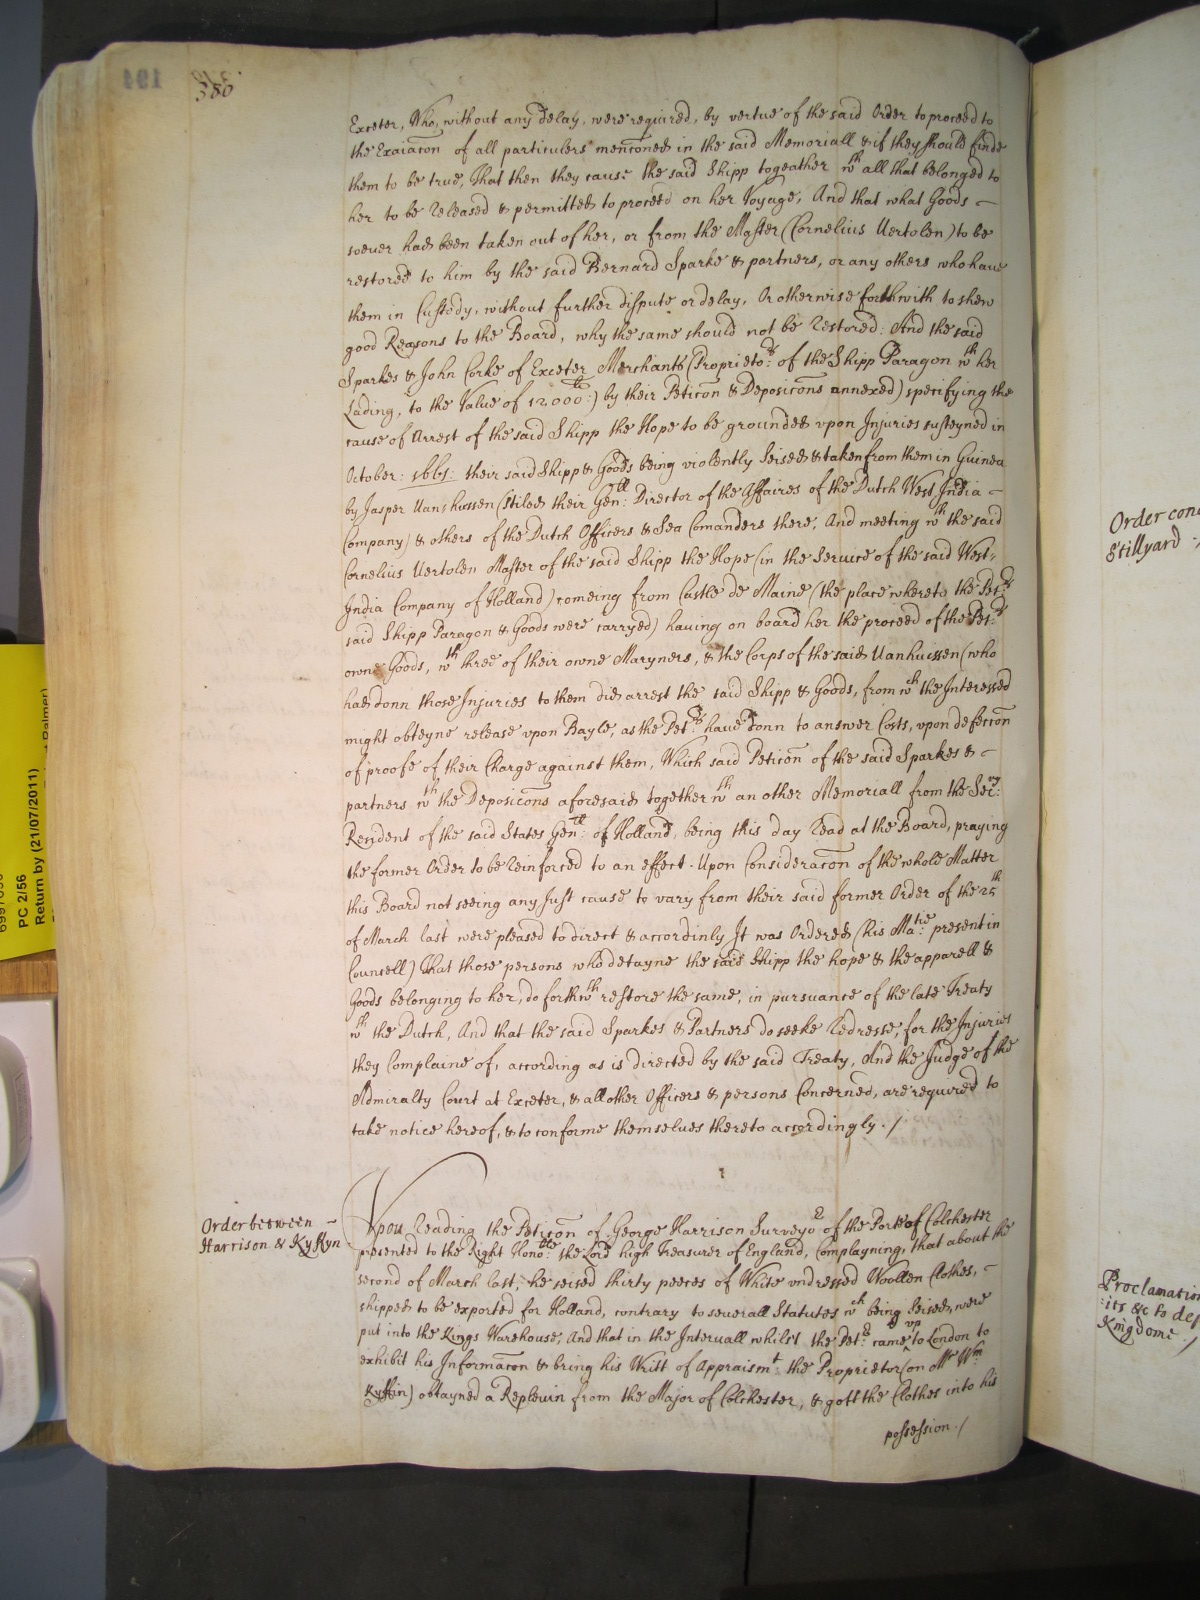 380
Exceter, Who, without any delay, were required, by vertue of the said Order to proceed to
the Exaiacon of all particulers menconed in the said Memoriall & if they should finde
them to be true, That then they cause the said Shipp togeather wth all that belonged to
her to be Released & permitted to proceed on her Voyage; And that what Goods –
soeuer had been taken out of her, or from the Master (Cornelius Uertolen) to be
restored to him by the said Bernard Sparke & partners, or any others who haue
them in Custody, without further dispute or delay, Or otherwise forthwith to shew
good Reasons to the Board, why the same should not be Restored: And the said
Sparkes & John Corke of Exceter Merchants (Proprieto:rs of the Shipp Paragon wth her
Lading, to the Value of 12000:li) by their Peticon & Deposicons annexed) specifying the
cause of Arrest of the said Shipp the Hope to be grounded vpon Injuries susteyned in
October: 1665: their said Shipp & Goods being violently Seised & taken from them in Guinea
by Jasper Uanhussen (Stiled their Gen:ll Director of the Affaires of the Dutch West India –
Company) & others of the Dutch Officers & Sea Comanders there, And meeting wth the said
Cornelius Uertolen Master of the said Shipp the Hope (in the Seruice of the said West-
India Company of Holland) comeing from Castle de Maine (the place whereto the Pet:rs
said Shipp Paragon & Goods were carryed) hauing on board her the proceed of the Pet:rs
owne Goods, wth three of their owne Maryners, & the Corps of the said Uanhussen (who
had donn those Injuries to them did arrest the said Shipp & Goods, from wch the Interessed
might obteyne release vpon Bayle, as the Pet:rs haue donn to answer Costs, vpon defeccon
of proofe of their Charge against them, Which said Peticon of the said Sparkes & –
partners wth the Deposicons aforesaid together wth an other Memoriall from the Sec:ry
Resident of the said States Gen:ll of Holland, being this day Read at the Board, praying
the former Order to be Reinforced to an effect. Upon Consideracon of the whole Matter
this Board not seeing any Just cause to vary from their said former Order of the 25th
of March last were pleased to direct & accordinly It was Ordered (his Ma:tie present in
Councell) That those persons who detayne the said Shipp the hope & the apparell &
Goods belonging to her, do forthwth restore the same, in pursuance of the late Treaty
wth the Dutch, And that the said Sparkes & Partners do seeke Redresse, for the Injuries
they Complaine of, according as is directed by the said Treaty, And the Judge of the
Admiralty Court at Exceter, & all other Officers & persons Concerned, are required to
take notice hereof, & to conforme themselues thereto accordingly. /
Order between –
Harrison & Kyffyn
Vpon Reading the Peticon of George Harrison Surveyor of the Porte of Colchester
presented to the Right Hono:ble the Lord high Treasurer of England, Complayning, that about the
second of March last, he seised thirty peeces of White vndressed Woollen Clothes, –
shipped to be exported for Holland, contrary to seuerall Statutes wch being Seised, were
put into the Kings Warehouse, And that in the Intervall whilst the Pet:r came vp to London to
exhibit his Informacon & bring his Writt of Appraismt: the Proprietor (on Mr Wm:
Kyffin) obtayned a Repleuin from the Major of Colchester, & gott the Clothes into his
possession. /
Order con
Stillyard
Proclamation
its &c to dep
Kingdome /
PC 2/56
Return by (21/07/2011)